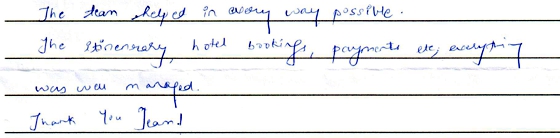 The team helped in every way possible.
The itinerary, hotel bookings, payments etc, everything
was well managed.
Thank You Team!